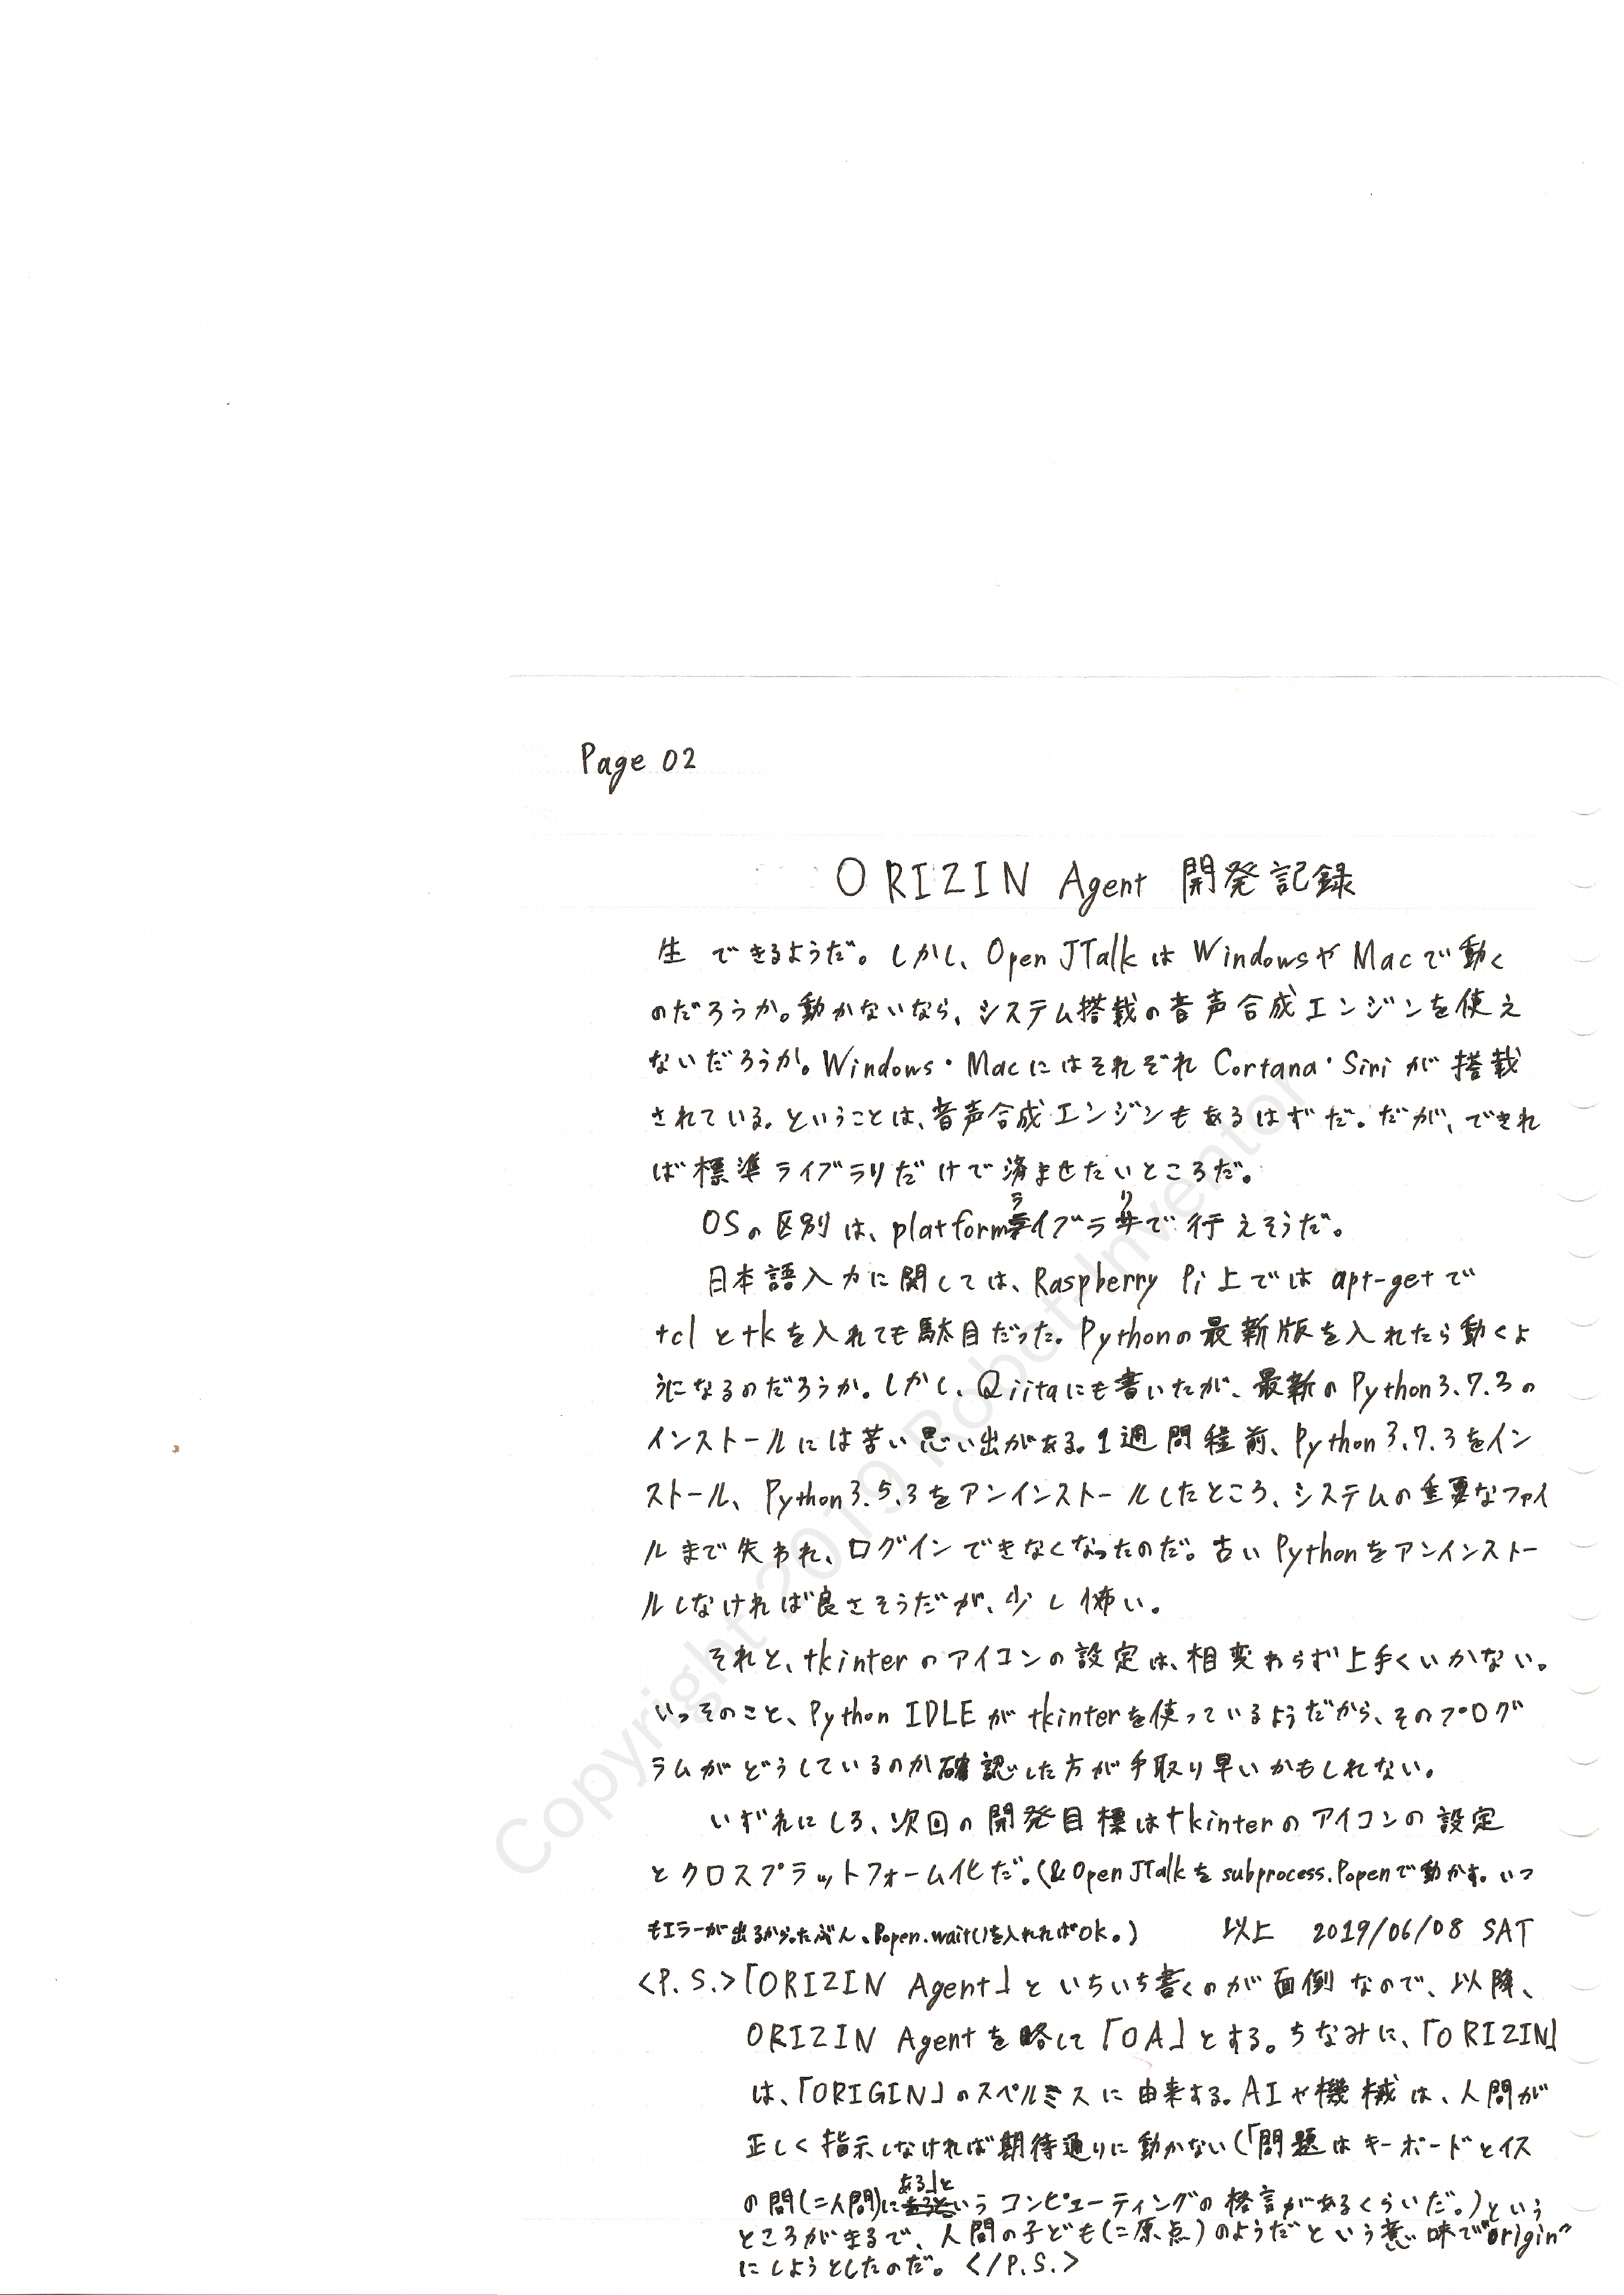 Page 02
ORIZIN Agent 開発記録
生できるようだ。しかし、Open JTalkはWindowsやMacで動く
のだろうか。動かないなら、システム搭載の音声合成エンジンを使え
ないだろうか。Windows・MacにはそれぞれCortana・Siriが搭載
されている。ということは、音声合成エンジンもあるはずだ。だが、できれ
ば標準ライブラリだけで済ませたいところだ。
OSの区別は、platformライブラリで行えそうだ。
日本語入力に関しては、Raspberry Pi上ではapt-getで
tclとtkを入れても駄目だった。Pythonの最新版を入れたら動くよ
うになるのだろうか。しかし、Qiitaにも書いたが、最新のPython3.7.3の
インストールには苦い思い出がある。1週間程前、Python3.7.3をイン
ストール、Python3.5.3をアンインストールしたところ、システムの重要なファイ
ルまで失われ、ログインできなくなったのだ。古いPythonをアンインストー
ルしなければ良さそうだが、少し怖い。
それと、tkinterのアイコンの設定は、相変わらず上手くいかない。
いっそのこと、Python IDLEがtkinterを使っているようだから、そのプログ
ラムがどうしているのか確認した方が手取り早いかもしれない。
いずれにしろ、次回の開発目標はtkinterのアイコンの設定
とクロスプラットフォーム化だ。(&Open JTalkをsubprocess.Popenで動かす。いつ
もエラーが出るから。たぶん、Popen.wait()を入れればOK。) 以上 2019/06/08 SAT
<P.S.>「ORIZIN Agent」といちいち書くのが面倒なので、以降、
ORIZIN Agentを略して「OA」とする。ちなみに、「ORIZIN」
は、「ORIGIN」のスペルミスに由来する。AIや機械は、人間が
正しく指示しなければ期待通りに動かない(「問題はキーボードとイス
の間(=人間)にある」というコンピューティングの格言があるくらいだ。)という
ところがまるで、人間の子ども(=原点)のようだという意味で"origin"
にしようとしたのだ。</P.S.>
Copyright 2019 Robot-Inventor